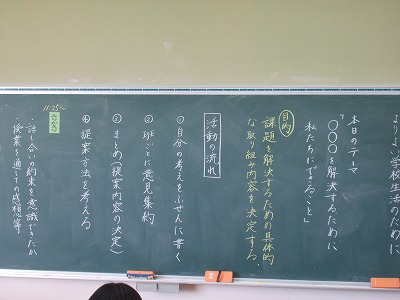 よりよい学校生活のために
本日のテーマ
「〇〇〇を解決するために
私たちにできること」
目的
課題を解決するための具体的
な取り組み内容を決定する。
活動の流れ
①自分の考えをふせんに書く
②班ごとに意見集約
③まとめ(提案内容の決定)
④提案方法を考える
11:25~
ふりかえり
・話し合いの約束を意識できたか
・授業を通しての感想等